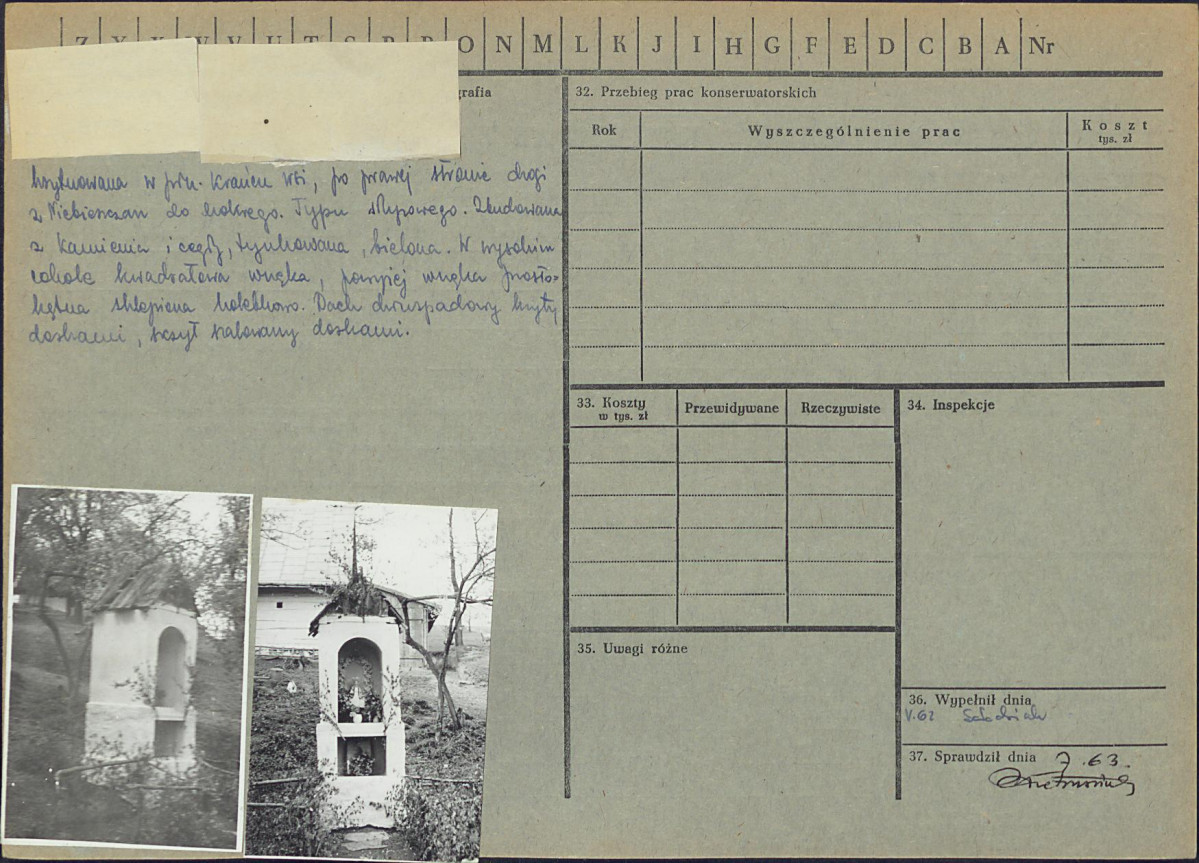 O N M L K J I H G F E D C B A Nr
grafia
w płn. krańcu wsi, po prawej stronie drogi
z Niebieszczan do Mokrego. Typu słupowego. Zbudowana
z kamienia i cegły, tynkowana, bielona. W wysokim
cokole kwadratowa wnęka, powyżej wnęka prosto-
kątna sklepiona kolebkowo. Dach dwuspadowy kryty
deskami, szczyt szalowany deskami.
32. Przebieg prac konserwatorskich
Rok Wyszczególnienie prac Koszt
tys. zł
33. Koszty Przewidywane Rzeczywiste
w tys. zł
34. Inspekcje
35. Uwagi różne
36. Wypełnił dnia
V.62
37. Sprawdził dnia 7.63.